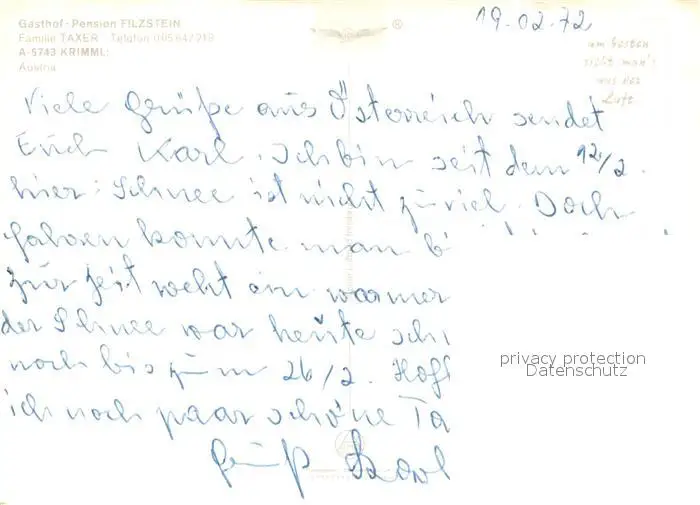 Gasthof - Pension FILZSTEIN
Familie TAXER - Telefon 06564/218
A-5743 KRIMML
Austria
19.02.72
am besten
sieht man's
aus der
Luft
Viele Grüße aus Österreich sendet
Euch Karl. Ich bin seit dem 12/2.
hier: Schnee ist nicht zu viel. Doch
fahren konnte man b
zur Zeit weht ein warmer
der Schnee war heute sch
noch bis zum 26/2. Hoff
ich noch paar schöne Ta
Gruß Karl
privacy protection
Datenschutz